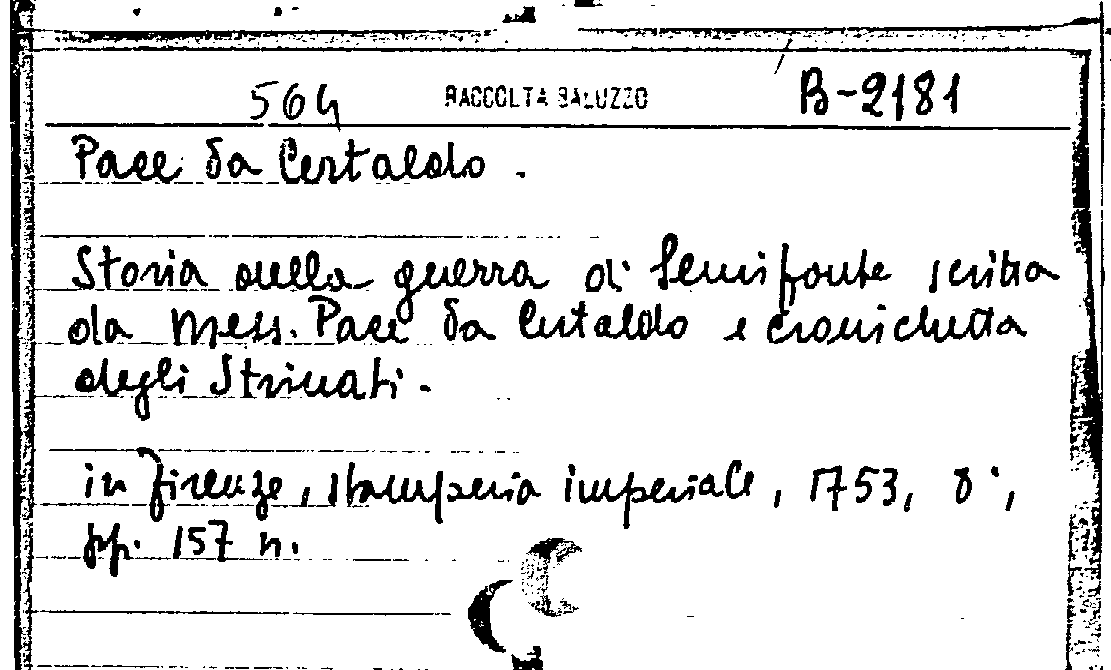 564 RACCOLTA SALUZZO B-2181
Pace da Certaldo.
Storia della guerra di Semifonte scritta
da Mess. Pace da Certaldo e cronichetta
degli Strinati.
in Firenze, stamperia imperiale, 1753, 8°,
pp. 157 n.